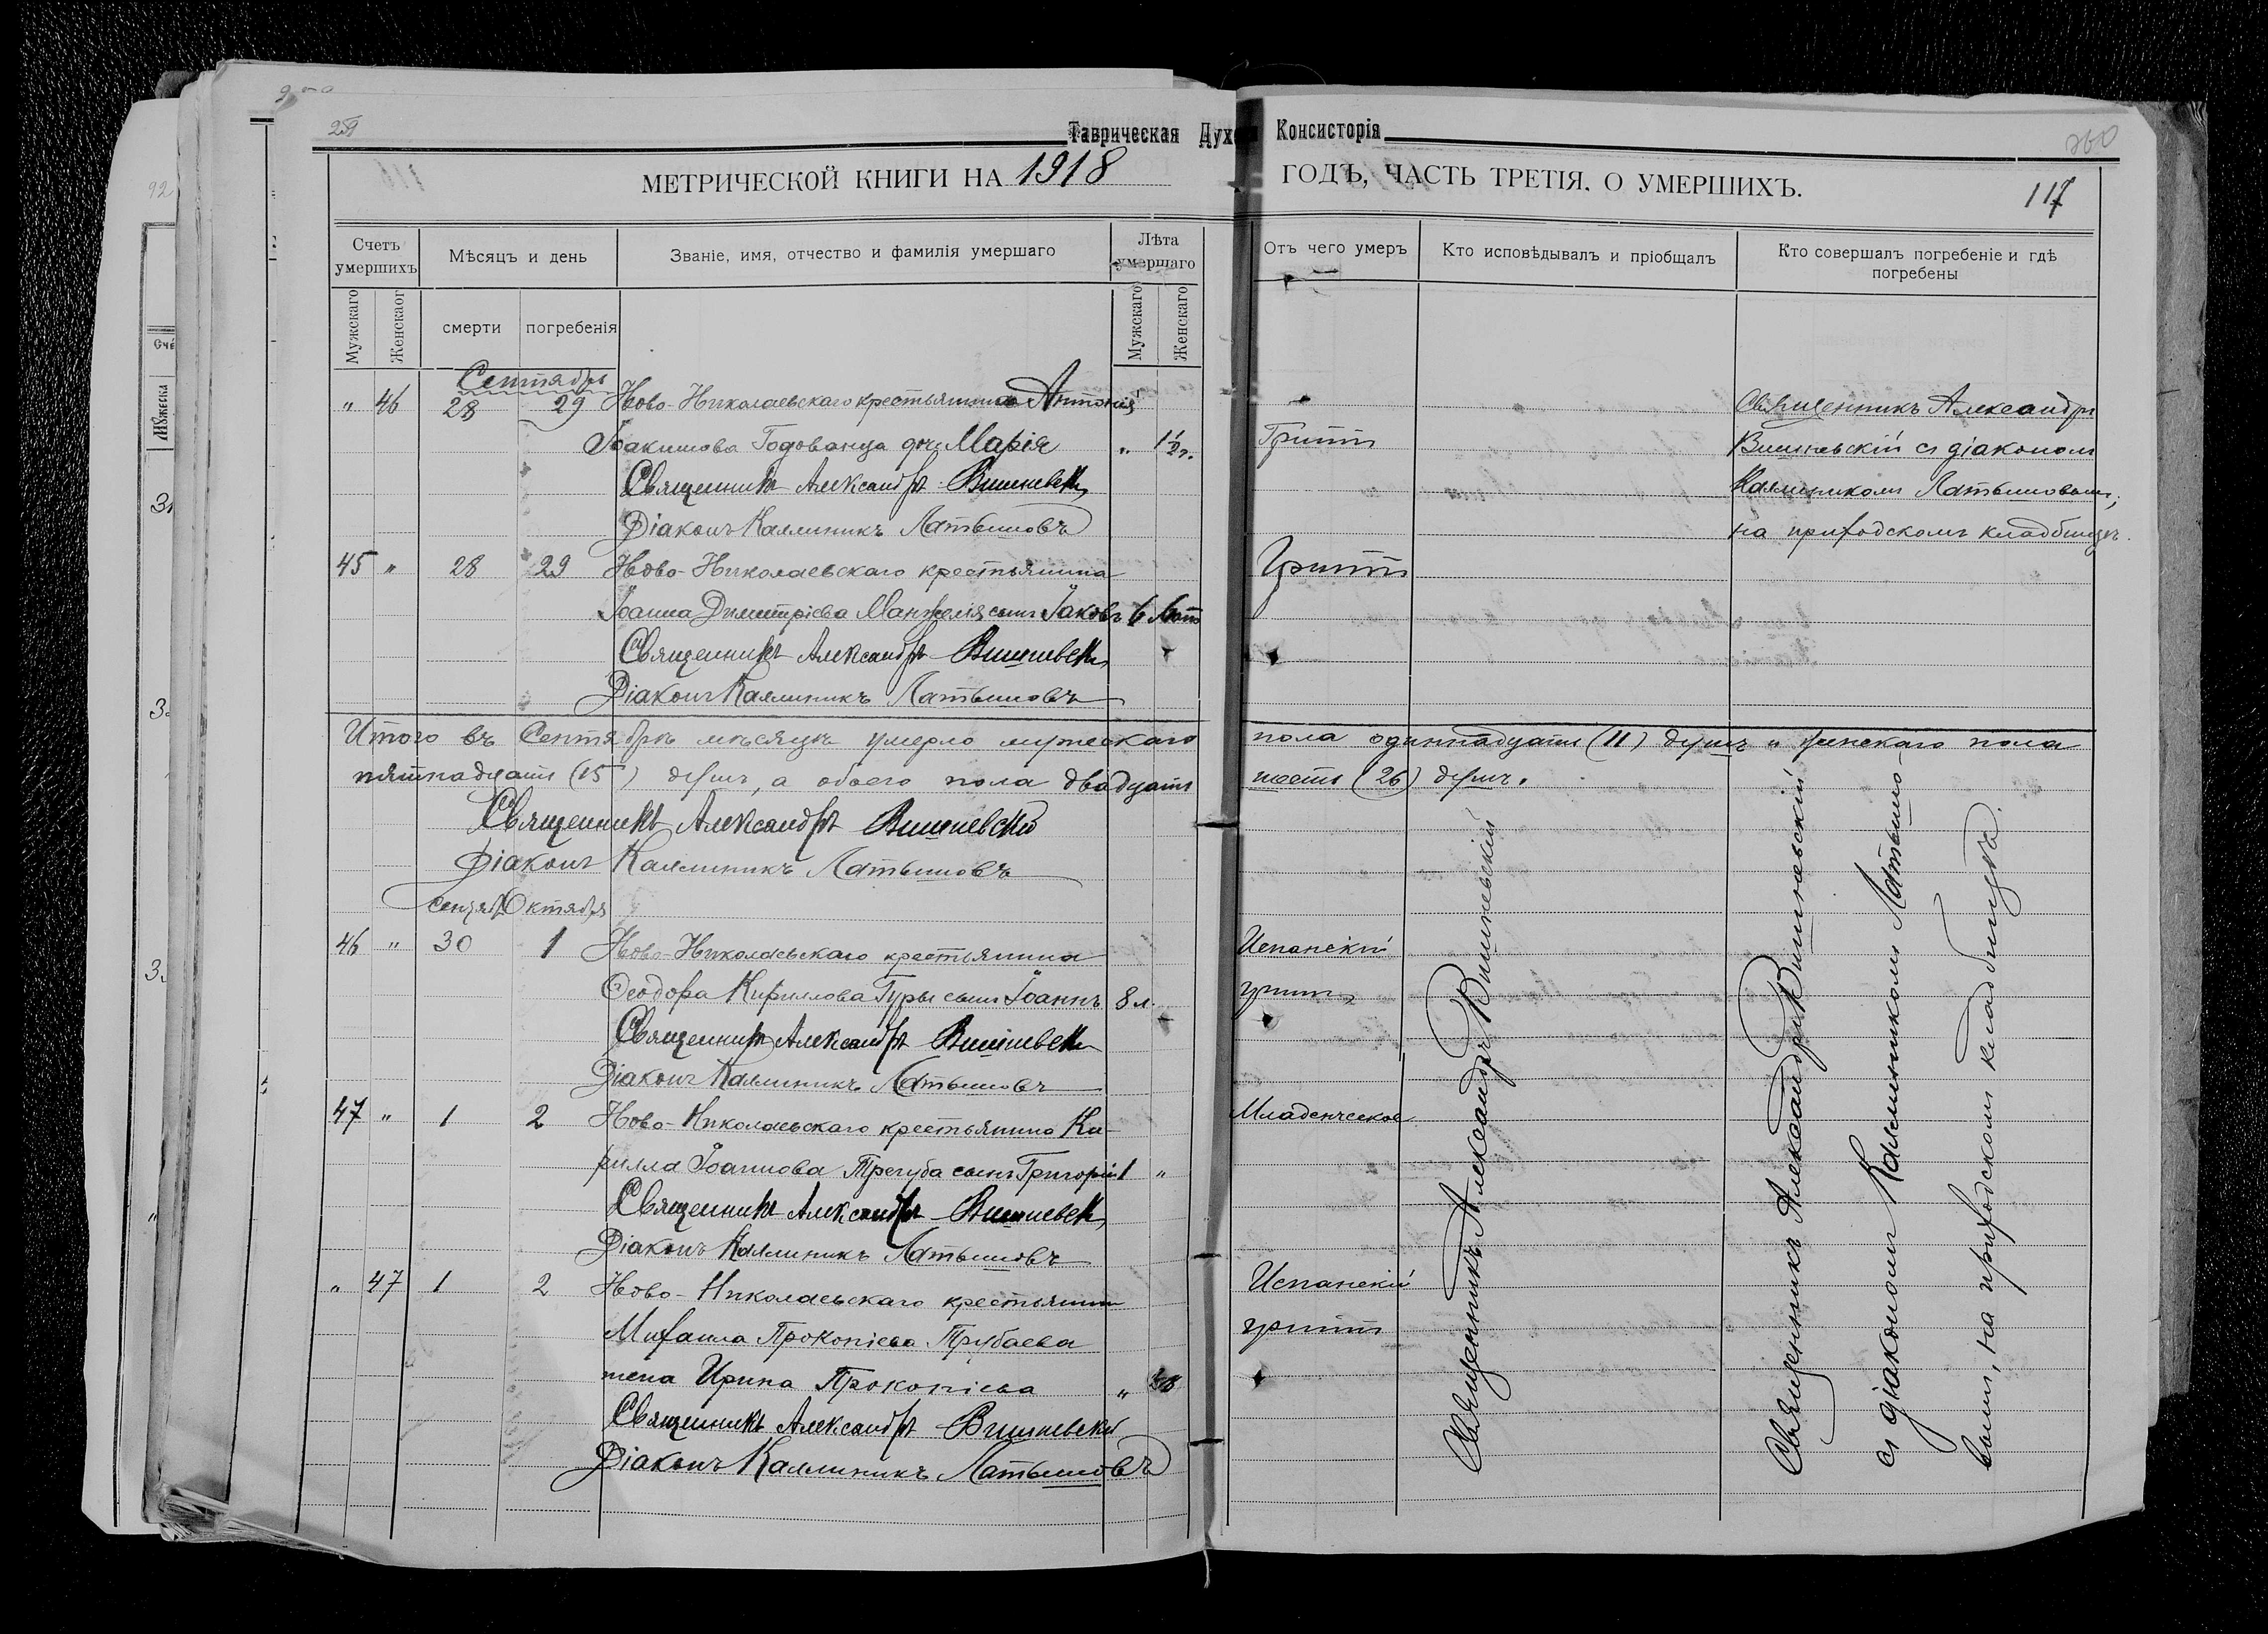 259
Таврическая Дух Консисторія
260
МЕТРИЧЕСКОЙ КНИГИ НА 1918 ГОДЪ, ЧАСТЬ ТРЕТІЯ. О УМЕРШИХЪ.
117
Счетъ умершихъ
Мѣсяцъ и день
Званіе, имя, отчество и фамилія умершаго
Лѣта умершаго
Отъ чего умеръ
Кто исповѣдывалъ и пріобщалъ
Кто совершалъ погребеніе и гдѣ погребены
Мужскаго
Женскаог
смерти
погребенія
Мужскаго
Женскаго
Сентябрь
" 46 28 29 Ново-Николаевскаго крестьянина Антонія
Іоакимова Годованца дочь Марія " 1 1/2 г. Гриппъ
Священникъ Александръ Вишневск
Діаконъ Каллиникъ Латышовъ
Священникъ Александръ
Вишневскій съ діакономъ
Каллиникомъ Латышовымъ,
на приходскомъ кладбищѣ.
45 " 28 29 Ново-Николаевскаго крестьянина Гриппъ
Іоанна Димитріева Манжелія сынъ Іаковъ 6 лѣтъ
Священникъ Александръ Вишневск
Діаконъ Каллиникъ Латышовъ
Итого въ Сентябрѣ мѣсяцѣ умерло мужескаго пола одиннадцать (11) душъ и женскаго пола
пятнадцать (15) душъ, а обоего пола двадцать шесть (26) душъ.
Священникъ Александръ Вишневскій
Діаконъ Каллиникъ Латышовъ
Сентяб Октября
46 " 30 1 Ново-Николаевскаго крестьянина Испанскій
Ѳеодора Кириллова Гуры сынъ Іоаннъ 8 л. гриппъ
Священникъ Александръ Вишневск
Діаконъ Каллиникъ Латышовъ
47 " 1 2 Ново-Николаевскаго крестьянина Ки- Младенческое
рилла Іоаннова Трегуба сынъ Григорій 1 "
Священникъ Александръ Вишневск
Діаконъ Каллиникъ Латышовъ
" 47 1 2 Ново-Николаевскаго крестьянин Испанскій
Михаила Прокопіева Трубаева гриппъ
жена Ирина Прокопіева "
Священникъ Александръ Вишневскій
Діаконъ Каллиникъ Латышовъ
Священникъ Александръ Вишневскій
Священникъ Александръ Вишневскій
съ діакономъ Каллиникомъ Латышо-
вымъ, на приходскомъ кладбищѣ.